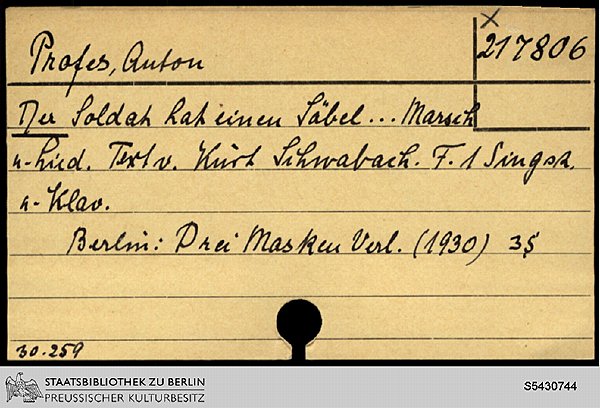 Profes, Anton
× 217806
Der Soldat hat einen Säbel... Marsch
u. Lied. Text v. Kurt Schwabach. F. 1 Singst.
u. Klav.
Berlin: Drei Masken Verl. (1930) 35
30.259
STAATSBIBLIOTHEK ZU BERLIN
PREUSSISCHER KULTURBESITZ
S5430744